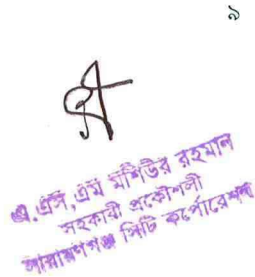 ৯
এ.এস.এম মশিউর রহমান
সহকারী প্রকৌশলী
নারায়ণগঞ্জ সিটি কর্পোরেশন